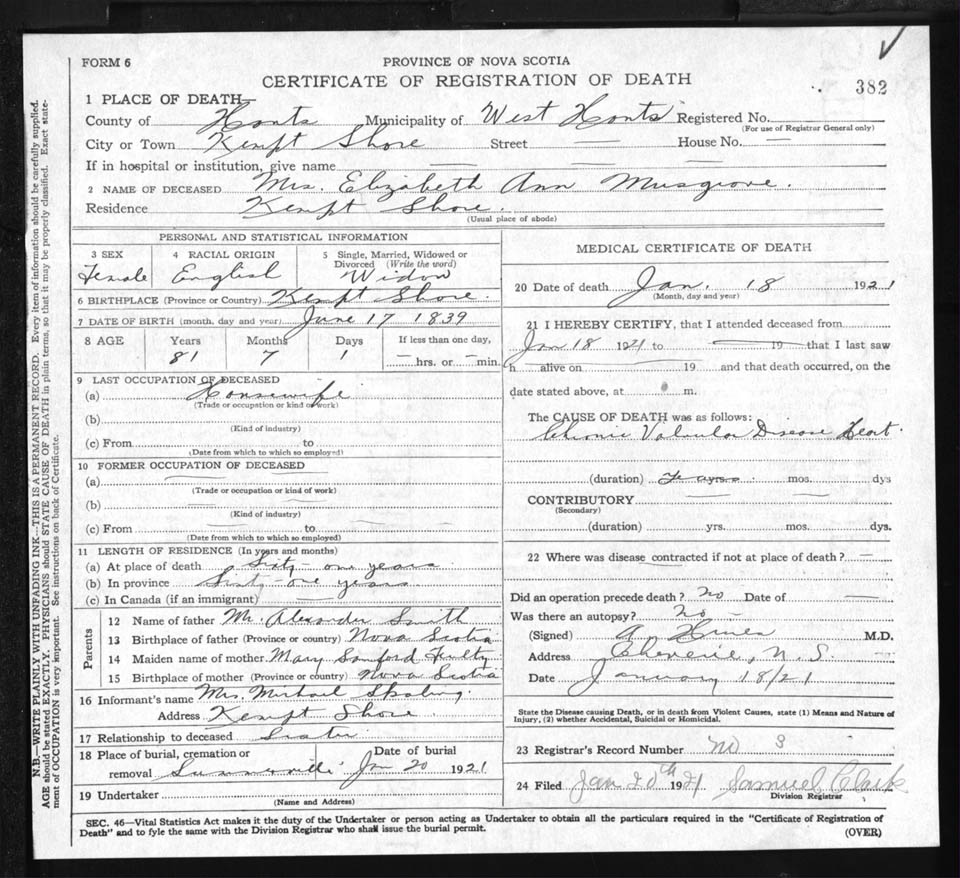 FORM 6
PROVINCE OF NOVA SCOTIA
CERTIFICATE OF REGISTRATION OF DEATH
382
1 PLACE OF DEATH—
County of Hants Municipality of West Hants Registered No.
(For use of Registrar General only)
City or Town Kempt Shore Street — House No. —
If in hospital or institution, give name — — —
2 NAME OF DECEASED Mrs. Elizabeth Ann Musgrove.
Residence Kempt Shore.
(Usual place of abode)
PERSONAL AND STATISTICAL INFORMATION
3 SEX 4 RACIAL ORIGIN 5 Single, Married, Widowed or
Divorced (Write the word)
Female English Widow
6 BIRTHPLACE (Province or Country) Kempt Shore.
7 DATE OF BIRTH (month, day and year) June 17 1839
8 AGE Years Months Days If less than one day,
81 7 1 — hrs. or — min.
9 LAST OCCUPATION OF DECEASED
(a) Housewife
(Trade or occupation or kind of work)
(b)
(Kind of industry)
(c) From to
(Date from which to which so employed)
10 FORMER OCCUPATION OF DECEASED
(a) — —
(Trade or occupation or kind of work)
(b) — —
(Kind of industry)
(c) From — to —
(Date from which to which so employed)
11 LENGTH OF RESIDENCE (In years and months)
(a) At place of death Sixty-one years
(b) In province Sixty-one years
(c) In Canada (if an immigrant) — —
Parents
12 Name of father Mr. Alexander Smith
13 Birthplace of father (Province or country) Nova Scotia
14 Maiden name of mother Mary Sanford
15 Birthplace of mother (Province or country) Nova Scotia
16 Informant's name Mrs. Michael
Address Kempt Shore
17 Relationship to deceased Sister
18 Place of burial, cremation or Date of burial
removal Summerville Jan 20 1921
19 Undertaker
(Name and Address)
MEDICAL CERTIFICATE OF DEATH
20 Date of death Jan. 18 1921
(Month, day and year)
21 I HEREBY CERTIFY, that I attended deceased from
Jan 18 1921 to — 19 — that I last saw
h alive on 19 and that death occurred, on the
date stated above, at m.
The CAUSE OF DEATH was as follows:
Chronic Valvular Disease Heart.
(duration) yrs. mos. dys
CONTRIBUTORY
(Secondary)
(duration) yrs. mos. dys.
22 Where was disease contracted if not at place of death? —
Did an operation precede death? No Date of —
Was there an autopsy? No
(Signed) M.D.
Address Cheverie, N.S.
Date January 18/21
State the Disease causing Death, or in death from Violent Causes, state (1) Means and Nature of
Injury, (2) whether Accidental, Suicidal or Homicidal.
23 Registrar's Record Number No 3
24 Filed Jan 20th 1921 Samuel Clark
Division Registrar
SEC. 46—Vital Statistics Act makes it the duty of the Undertaker or person acting as Undertaker to obtain all the particulars required in the "Certificate of Registration of
Death" and to fyle the same with the Division Registrar who shall issue the burial permit.
(OVER)
N.B.—WRITE PLAINLY WITH UNFADING INK—THIS IS A PERMANENT RECORD. Every item of information should be carefully supplied.
AGE should be stated EXACTLY. PHYSICIANS should STATE CAUSE OF DEATH in plain terms, so that it may be properly classified. Exact state-
ment of OCCUPATION is very important. See instructions on back of Certificate.